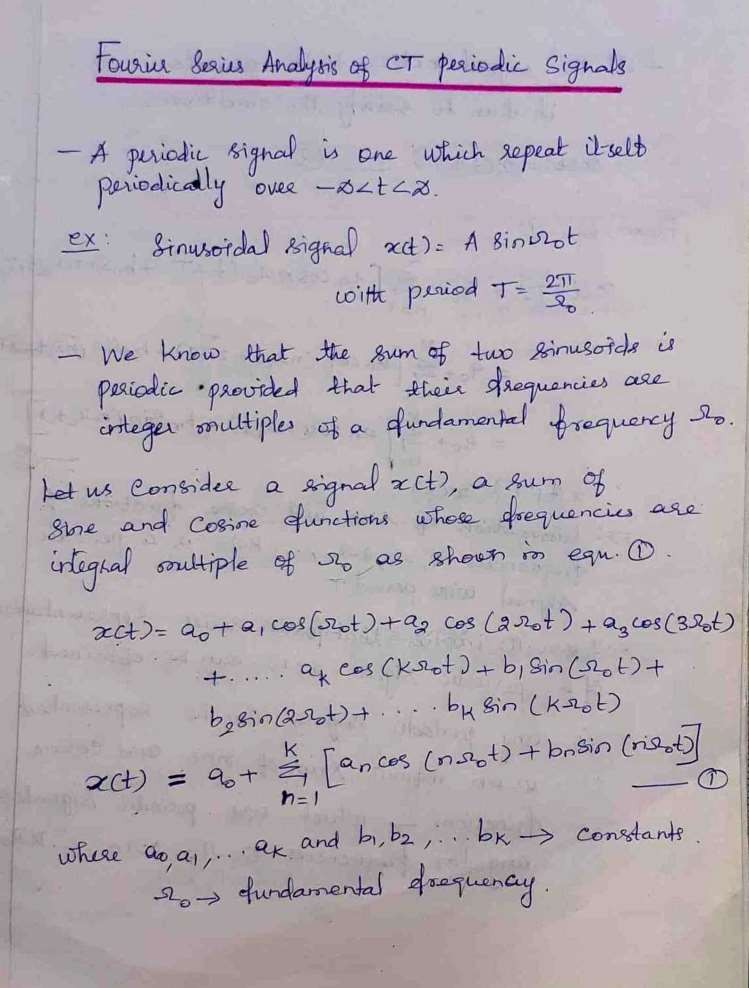 Fourier Series Analysis of CT periodic Signals
– A periodic signal is one which repeat itself
periodically over -∞<t<∞.
ex: Sinusoidal signal x(t)= A sinΩ₀t
with period T= 2π/Ω₀.
– We know that the sum of two sinusoids is
periodic provided that their frequencies are
integer multiples of a fundamental frequency Ω₀.
Let us consider a signal x(t), a sum of
sine and cosine functions whose frequencies are
integral multiple of Ω₀ as shown in equ. ①.
x(t)= a₀+a₁cos(Ω₀t)+a₂ cos (2Ω₀t)+a₃cos(3Ω₀t)
+..... aₖ cos (kΩ₀t)+b₁sin(Ω₀t)+
b₂sin(2Ω₀t)+.... bₖ sin (kΩ₀t)
x(t) = a₀+ K Σ n=1 [aₙcos (nΩ₀t)+bₙsin (nΩ₀t)] — ①
where a₀,a₁,... aₖ and b₁,b₂,...bₖ → constants.
Ω₀→ fundamental frequency.